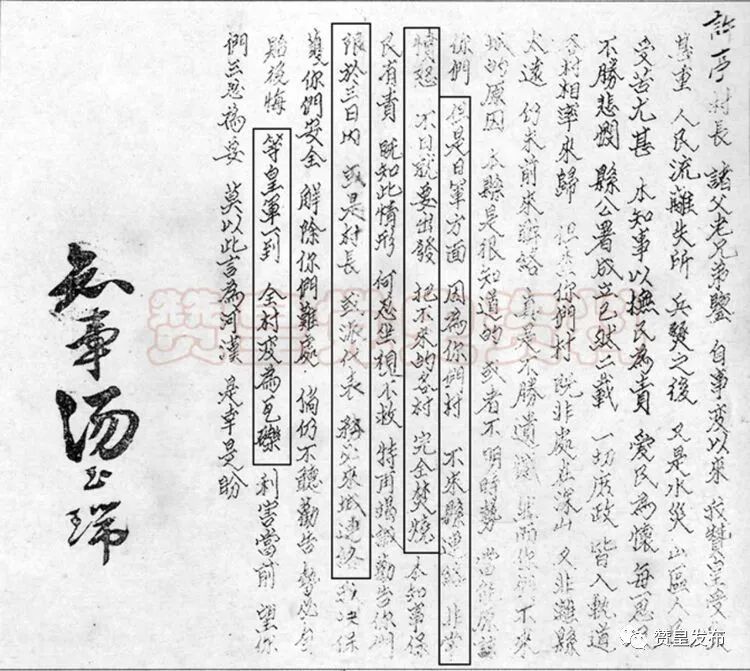 許亭村長 諸父老兄弟鑒 自事变以来 我贊皇受
甚重 人民流離失所 兵燹之後 又是水災 山區人
受苦尤甚 本知事以撫民為責 愛民為懷 每一思
不勝悲憫 縣公署成立已致二載 一切庶政 皆入軌道
各村相率來歸 但是你們村 既非處在深山 又非離縣
太遠 仍未前來聯絡 真是不勝遺憾 然而你們不來
城的原因 本縣是很知道的 或者不明時勢 當能原諒
你們 但是日軍方面 因為你們村 不來縣連絡 非常
憤怒 不日就要出發 把不來的各村 完全焚燒 本知事保
民有責 既知此情形 何忍坐視不救 特再竭誠勸告你们
限於三日内 或是村長 或派代表 務必來城連絡 我决保
護你們安全 解除你們難處 倘仍不聽勸告 勢必
貽後悔 等皇軍一到 全村变為瓦礫 利害當前 望你
們三思為要 莫以此言為河漢 是幸是盼
知事汤玉瑞
赞皇发布